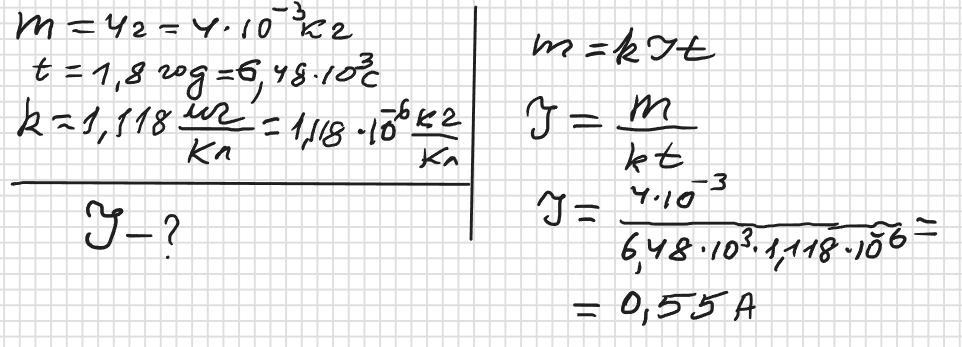 m = 4г = 4·10⁻³кг
t = 1,8 год = 6,48·10³с
k = 1,118 мг/Кл = 1,118·10⁻⁶ кг/Кл
I – ?
m = kIt
I = m/kt
I = 4·10⁻³/6,48·10³·1,118·10⁻⁶ =
= 0,55 А